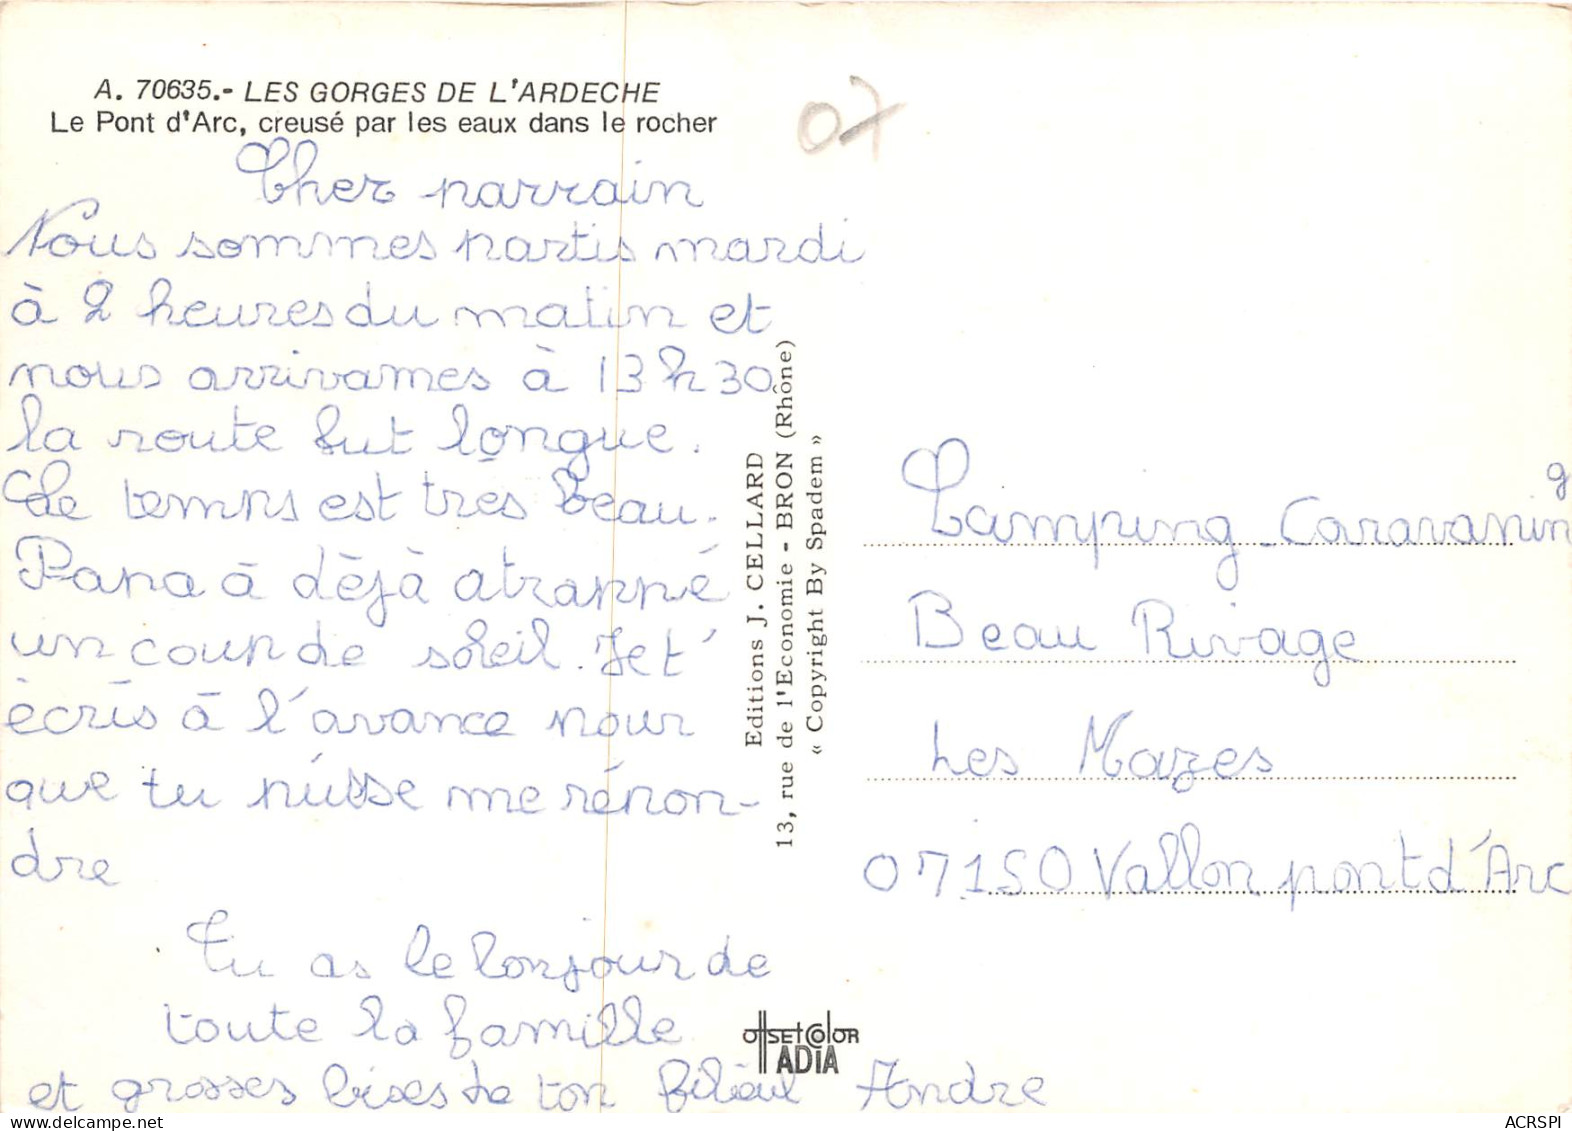 A. 70635.- LES GORGES DE L'ARDECHE
Le Pont d'Arc, creusé par les eaux dans le rocher
07
Cher parrain
Nous sommes partis mardi
à 2 heures du matin et
nous arrivames à 13h30
la route fut longue.
Le temps est très beau.
Papa à déjà atrappé
un coup de soleil. Je t'
écris à l'avance pour
que tu puisse me répon-
dre
Tu as le bonjour de
toute la famille
et grosses bises de ton filieul Andre
Editions J. CELLARD
13, rue de l'Economie - BRON (Rhône)
« Copyright By Spadem »
OffSET COlOR
ADIA
Camping-Caravaning
Beau Rivage
Les Mazes
07150 Vallon pont d'Arc
ACRSPI